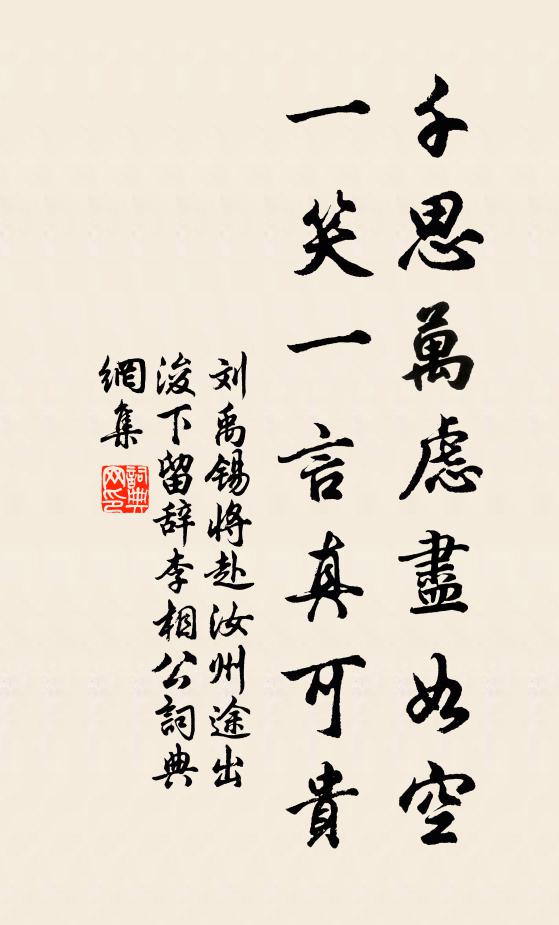 千思萬慮盡如空
一笑一言真可貴
刘禹锡将赴汝州途出
浚下留辞李相公詞典
網集
詞典
网印